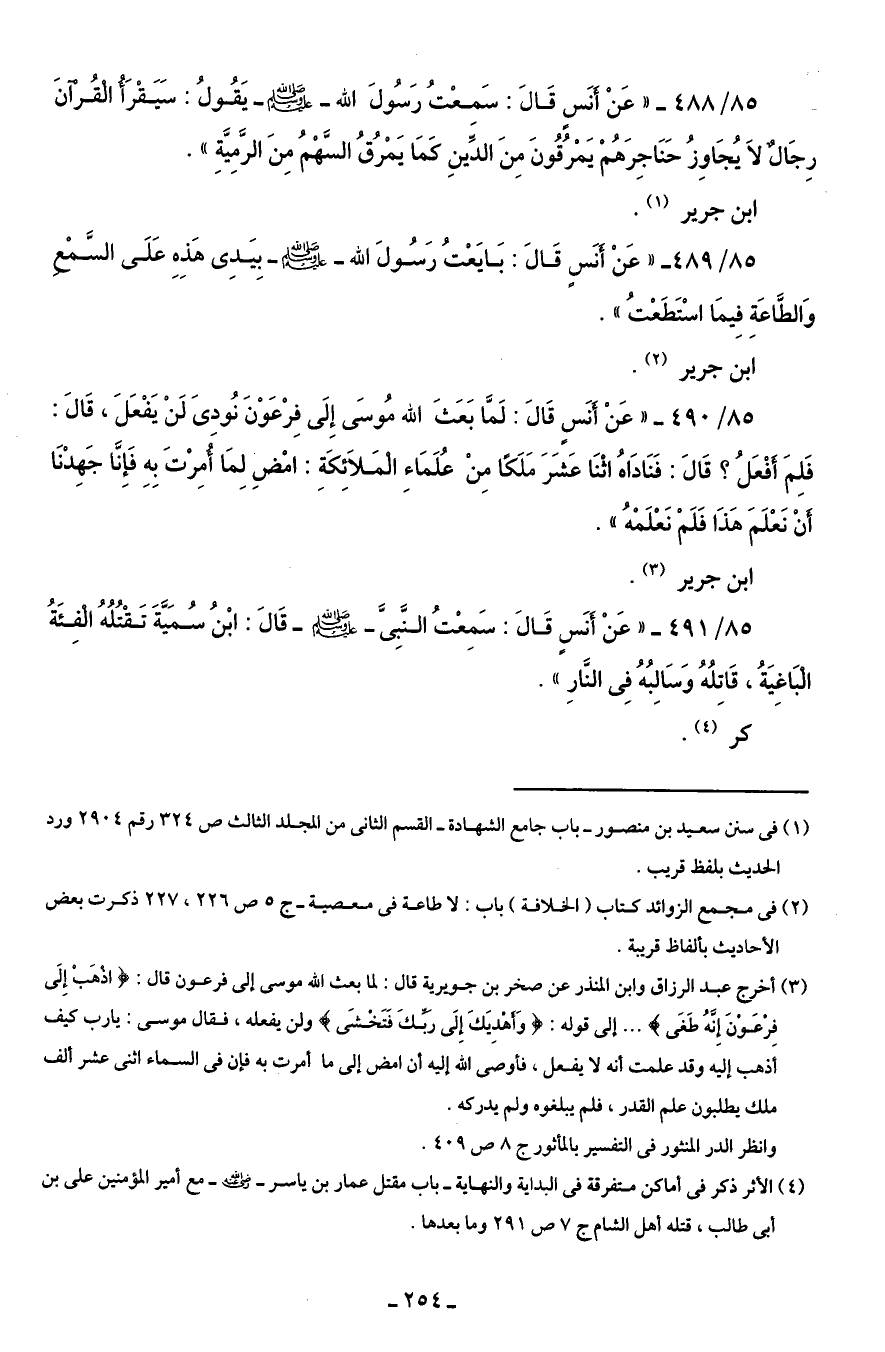 ٨٥/ ٤٨٨ ـ « عَنْ أَنَسٍ قَـالَ : سَمِـعْتُ رَسُولَ الله ـ ﷺ ـ يَقُولُ : سَيَـقْرَأُ الْقُـرْآنَ
رِجَالٌ لاَ يُجَاوِزُ حَنَاجِرَهُمْ يَمْرُقُونَ مِنَ الدِّينِ كَمَا يَمْرُقُ السَّهْمُ مِنَ الرَّمِيَّةِ » .
ابن جرير (١) .
٨٥/ ٤٨٩ـ « عَنْ أَنَسٍ قَـالَ : بَـايَعْتُ رَسُـولَ الله ـ ﷺ ـ بِيَـدِى هَذِهِ عَلَـى السَّـمْعِ
وَالطَّاعَةِ فِيمَا اسْتَطَعْتُ » .
ابن جرير (٢) .
٨٥/ ٤٩٠ ـ « عَنْ أَنَسٍ قَالَ : لَمَّا بَعَثَ الله مُوسَى إِلَى فِرْعَوْنَ نُودِىَ لَنْ يَفْعَلَ ، قَالَ :
فَلِمَ أَفْعَلُ ؟ قَالَ : فَنَادَاهُ اثْنَا عَشَرَ مَلَكًا مِنْ عُلَمَاءِ الْمَـلاَئِكَةِ : امْضِ لِمَا أُمِرْتَ بِهِ فَإِنَّا جَهِدْنَا
أَنْ نَعْلَمَ هَذَا فَلَمْ نَعْلَمْهُ » .
ابن جرير (٣) .
٨٥/ ٤٩١ ـ « عَنْ أَنَسٍ قَـالَ : سَمِعْتُ الـنَّبِىَّ ـ ﷺ ـ قَالَ : ابْنُ سُـمَيَّةَ تَـقْتُلُهُ الْفِـئَةُ
الْبَاغِيَةُ ، قَاتِلُهُ وَسَالِبُهُ فِى النَّارِ » .
كر (٤) .
(١) فى سنن سعـيد بن منصـور ـ باب جامع الشهـادة ـ القسم الثانى من المجـلد الثالث ص ٣٢٤ رقم ٢٩٠٤ ورد
الحديث بلفظ قريب .
(٢) فى مـجـمع الزوائد كـتاب ( الخـلافـة ) باب : لا طاعـة فى مـعـصيـة ـ ج ٥ ص ٢٢٦ ، ٢٢٧ ذكـرت بعض
الأحاديث بألفاظ قريبة .
(٣) أخرج عبـد الرزاق وابن المنذر عن صخر بن جـويرية قال : لما بعث الله موسى إلى فرعـون قال : ﴿ اذْهَبْ إِلَى
فِرْعَـوْنَ إِنَّهُ طَغَى ﴾ ... إلى قوله : ﴿ وَأَهْدِيَكَ إِلَى رَبِّـكَ فَتَخْـشَى ﴾ ولن يفعله ، فـقال موسـى : يارب كيف
أذهب إليه وقد علمت أنه لا يفـعل ، فأوصى الله إليه أن امض إلى ما أمرت به فإن فى السـماء اثنى عشر ألف
ملك يطلبون علم القدر ، فلم يبلغوه ولم يدركه .
وانظر الدر المنثور فى التفسير بالمأثور ج ٨ ص ٤٠٩ .
(٤) الأثر ذكر فى أماكن مـتفرقة فى البداية والنهـاية ـ باب مقتل عمار بن ياسر ـ رضي الله عنه ـ مع أمير المؤمنين على بن
أبى طالب ، قتله أهل الشام ج ٧ ص ٢٩١ وما بعدها .
ـ ٢٥٤ ـ